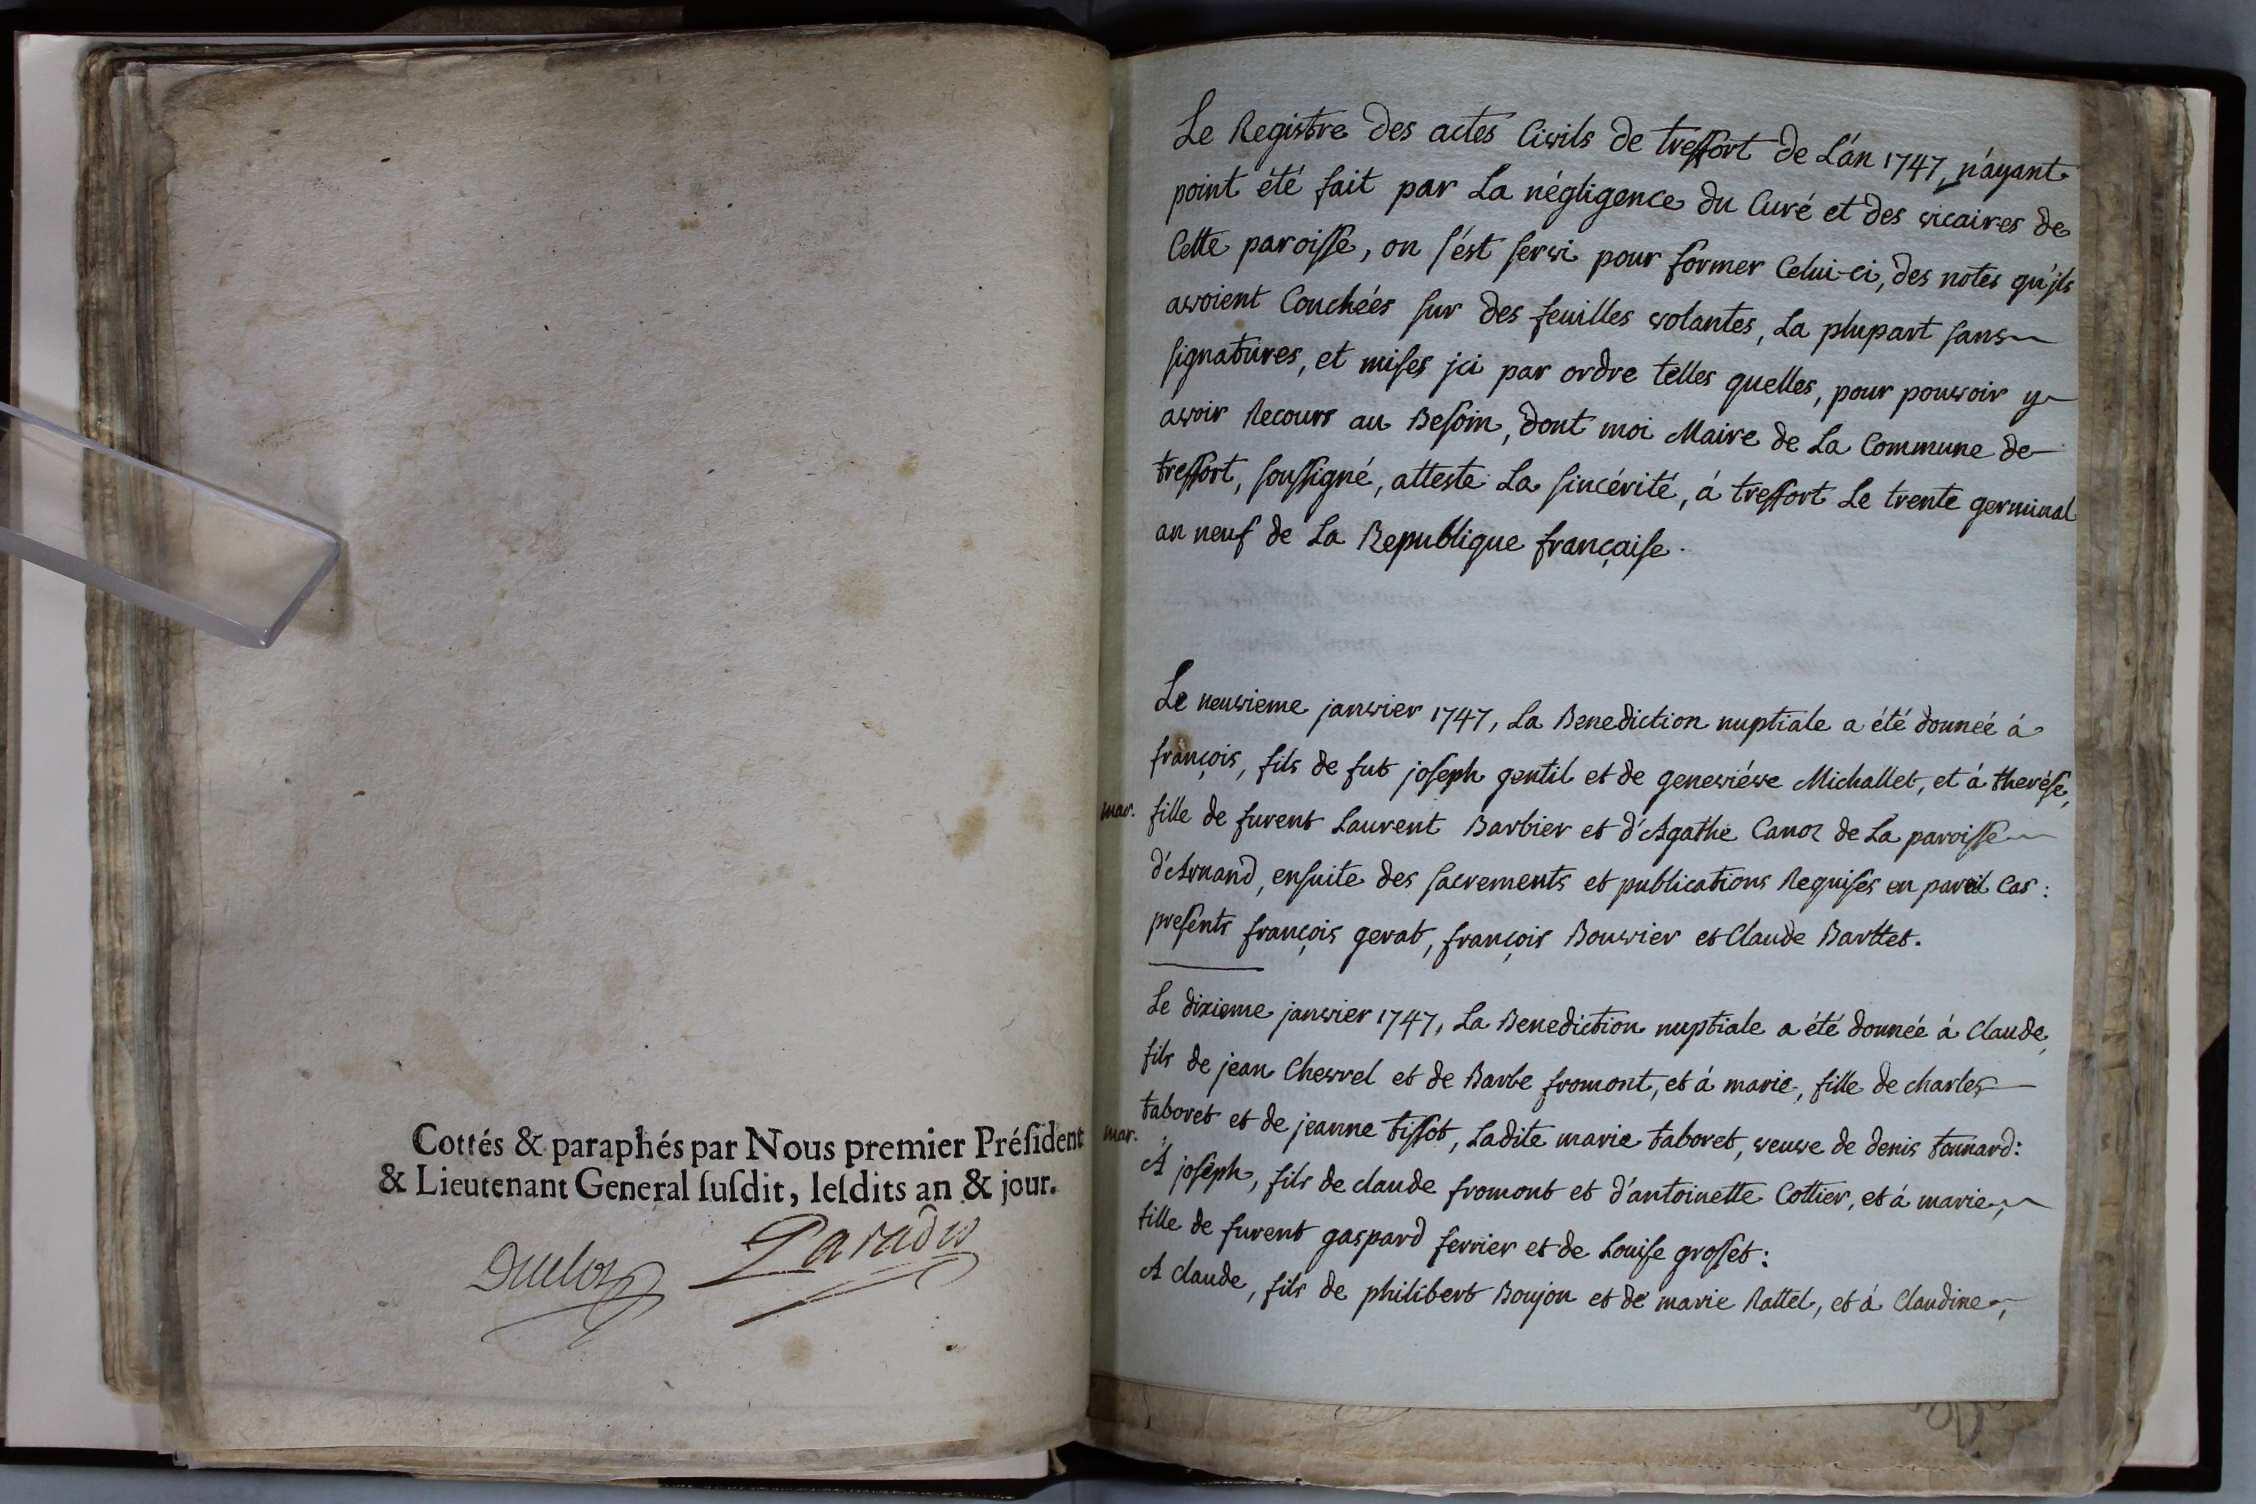 Cottés & paraphés par Nous premier Préſident
& Lieutenant General ſuſdit, leſdits an & jour.
Duclos Paradis
Le Registre des actes Civils de treffort de L'an 1747, n'ayant
point été fait par La négligence du Curé et des vicaires de
Cette paroisse, on s'est servi pour former Celui-ci, des notes qu'ils
avoient Couchées sur des feuilles volantes, La plupart sans
signatures, et mises ici par ordre telles quelles, pour pouvoir y
avoir Recours au Besoin, dont moi Maire de La Commune de
treffort, soussigné, atteste La sincérité, á treffort Le trente germinal
an neuf de La Republique française.
Le neuvieme janvier 1747, La Benediction nuptiale a été donnée á
françois, fils de fut joseph gentil et de geneviéve Michallet, et á therése,
mar. fille de furent Laurent Barbier et d'Agathe Canoz de La paroisse
d'Arnand, ensuite des sacrements et publications Requises en pareil Cas:
presents françois gerat, françois Bouvier et Claude Barttet.
Le dixieme janvier 1747, La Benediction nuptiale a été donnée á Claude,
fils de jean Chevrel et de Barbe fromont, et á marie, fille de charles
mar. taboret et de jeanne tissot, Ladite marie taboret, veuve de denis tonnard:
A joseph, fils de claude fromont et d'antoinette Cottier, et á marie,
fille de furent gaspard ferrier et de Louise grosset:
A claude, fils de philibert Boujon et de marie Rattel, et á Claudine,